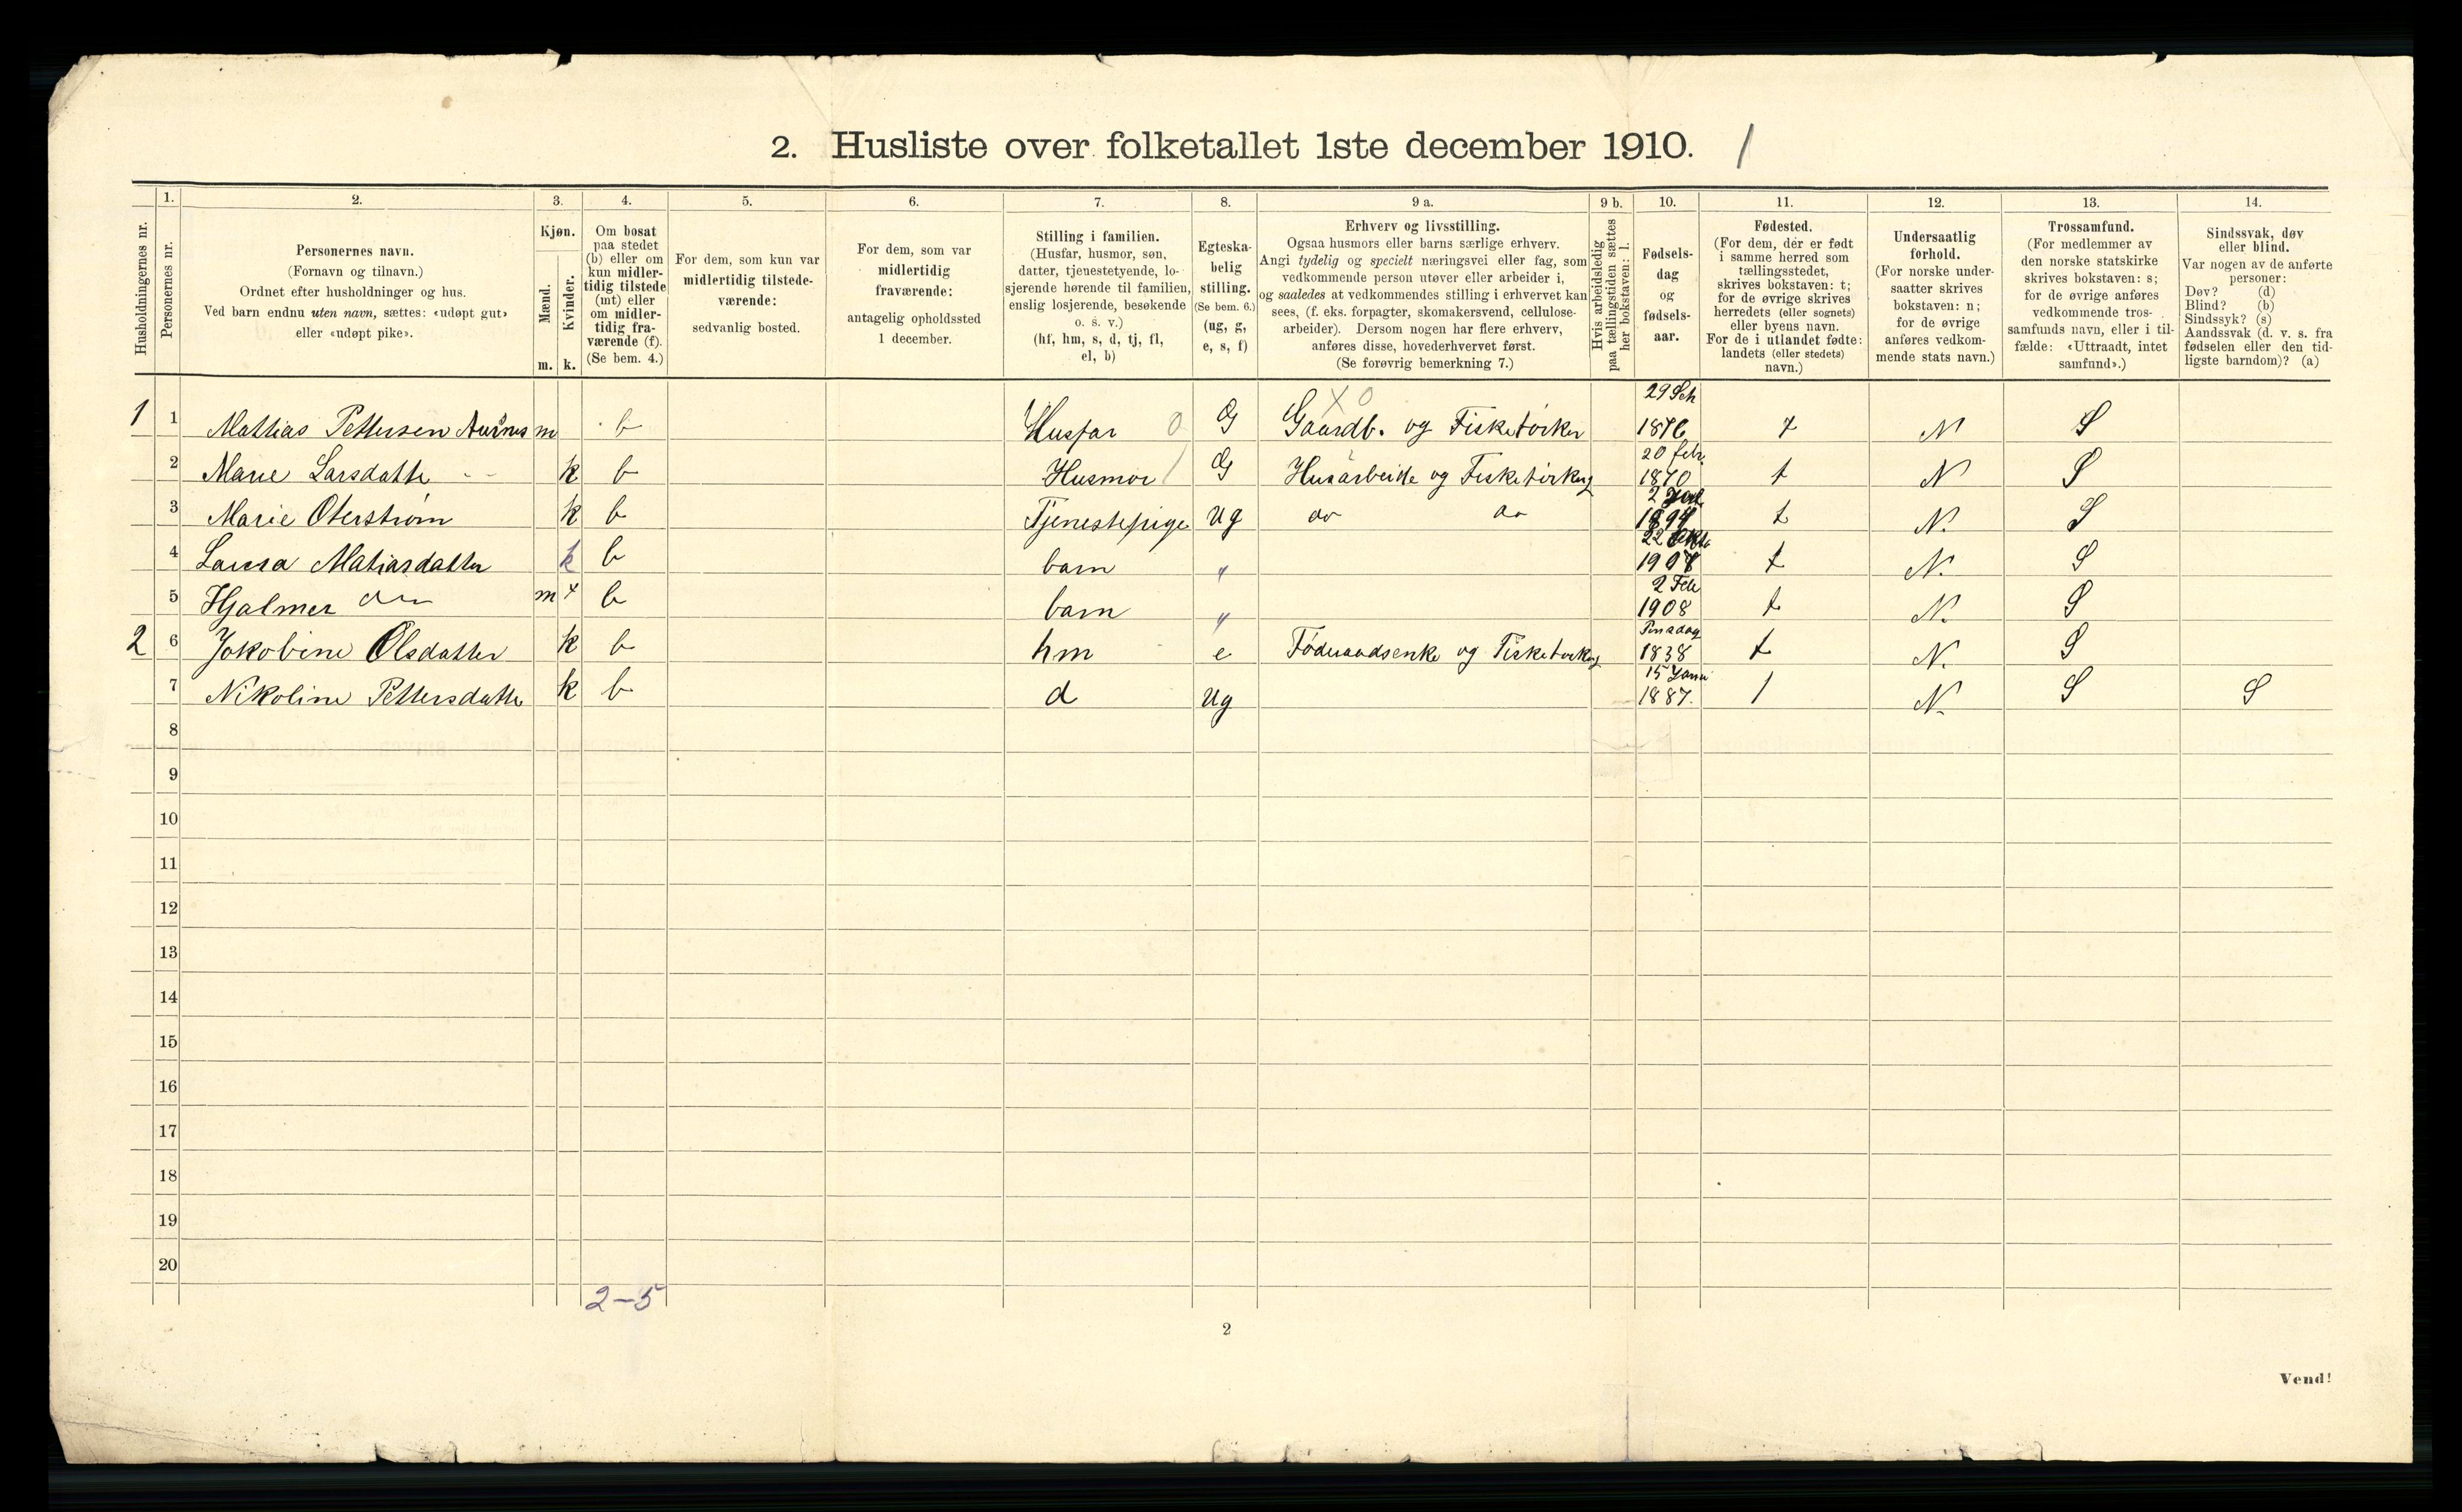 2. Husliste over folketallet 1ste december 1910. /
1. 2. 3. 4. 5. 6. 7. 8. 9 a. 9 b. 10. 11. 12. 13. 14.
Husholdningernes nr.
Personernes nr.
Personernes navn.
(Fornavn og tilnavn.)
Ordnet efter husholdninger og hus.
Ved barn endnu uten navn, sættes: «udøpt gut»
eller «udøpt pike».
Kjøn.
Mænd.
Kvinder.
m. k.
Om bosat
paa stedet
(b) eller om
kun midler-
tidig tilstede
(mt) eller
om midler-
tidig fra-
værende (f).
(Se bem. 4.)
For dem, som kun var
midlertidig tilstede-
værende:
sedvanlig bosted.
For dem, som var
midlertidig
fraværende:
antagelig opholdssted
1 december.
Stilling i familien.
(Husfar, husmor, søn,
datter, tjenestetyende, lo-
sjerende hørende til familien,
enslig losjerende, besøkende
o. s. v.)
(hf, hm, s, d, tj, fl,
el, b)
Egteska-
belig
stilling.
(Se bem. 6.)
(ug, g,
e, s, f)
Erhverv og livsstilling.
Ogsaa husmors eller barns særlige erhverv.
Angi tydelig og specielt næringsvei eller fag, som
vedkommende person utøver eller arbeider i,
og saaledes at vedkommendes stilling i erhvervet kan
sees, (f. eks. forpagter, skomakersvend, cellulose-
arbeider). Dersom nogen har flere erhverv,
anføres disse, hovederhvervet først.
(Se forøvrig bemerkning 7.)
Hvis arbeidsledig
paa tællingstiden sættes
her bokstaven: l.
Fødsels-
dag
og
fødsels-
aar.
Fødested.
(For dem, der er født
i samme herred som
tællingsstedet,
skrives bokstaven: t;
for de øvrige skrives
herredets (eller sognets)
eller byens navn.
For de i utlandet fødte:
landets (eller stedets)
navn.)
Undersaatlig
forhold.
(For norske under-
saatter skrives
bokstaven: n;
for de øvrige
anføres vedkom-
mende stats navn.)
Trossamfund.
(For medlemmer av
den norske statskirke
skrives bokstaven: s;
for de øvrige anføres
vedkommende tros-
samfunds navn, eller i til-
fælde: «Uttraadt, intet
samfund».)
Sindssvak, døv
eller blind.
Var nogen av de anførte
personer:
Døv? (d)
Blind? (b)
Sindssyk? (s)
Aandssvak (d. v. s. fra
fødselen eller den tid-
ligste barndom)? (a)
X 0
1 1 Mattias Pettersen m b Husfar 0 G Gaardb. og Fisketörker 29 1876 t N S
2 Marie Larsdatter - - k b Husmor / G Husarbeide og Fisketörkng 20 febr. 1870 t N S
3 Marie Oterstrøm k b Tjenestepige Ug do do 2 1894 t N. S
4 Laura Matiasdatter k b barn " 22 1907 t N. S
5 Hjalmer do m b barn " 2 Feb 1908 t N. S
2 6 Jokobine Olsdatter k b hm e Föderaadsenke og Fisketörkng 1838 t N. S
7 Nikoline Pettersdatter k b d Ug 15 Janu 1887. / N. S S
8
9
10
11
12
13
14
15
16
17
18
19
20
2-5
2
Vend!